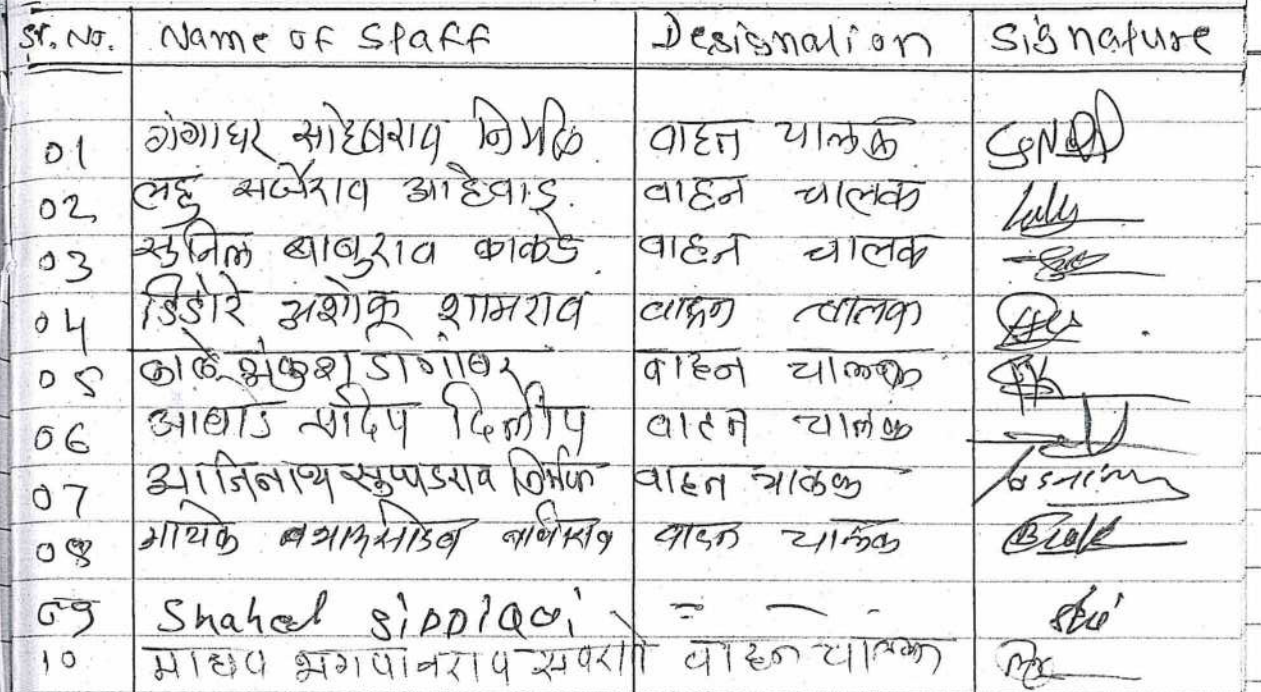 Sr. No. Name of Staff Designation Signature
01 गंगाधर साहेबराव निर्मळ वाहन चालक
02 लहु सर्जेराव आहेवाड वाहन चालक
03 सुनिल बाबुराव काकडे वाहन चालक
04 डिडोरे अशोक शामराव वाहन चालक
05 काळे अंकुश वाहन चालक
06 आघाड संदिप दिलीप वाहन चालक
07 आजिनाथ सुपडराव निर्मळ वाहन चालक
08 गायके वाहन चालक
09 Shahed Siddiqui = - -
10 माधव भगवानराव वाहन चालक